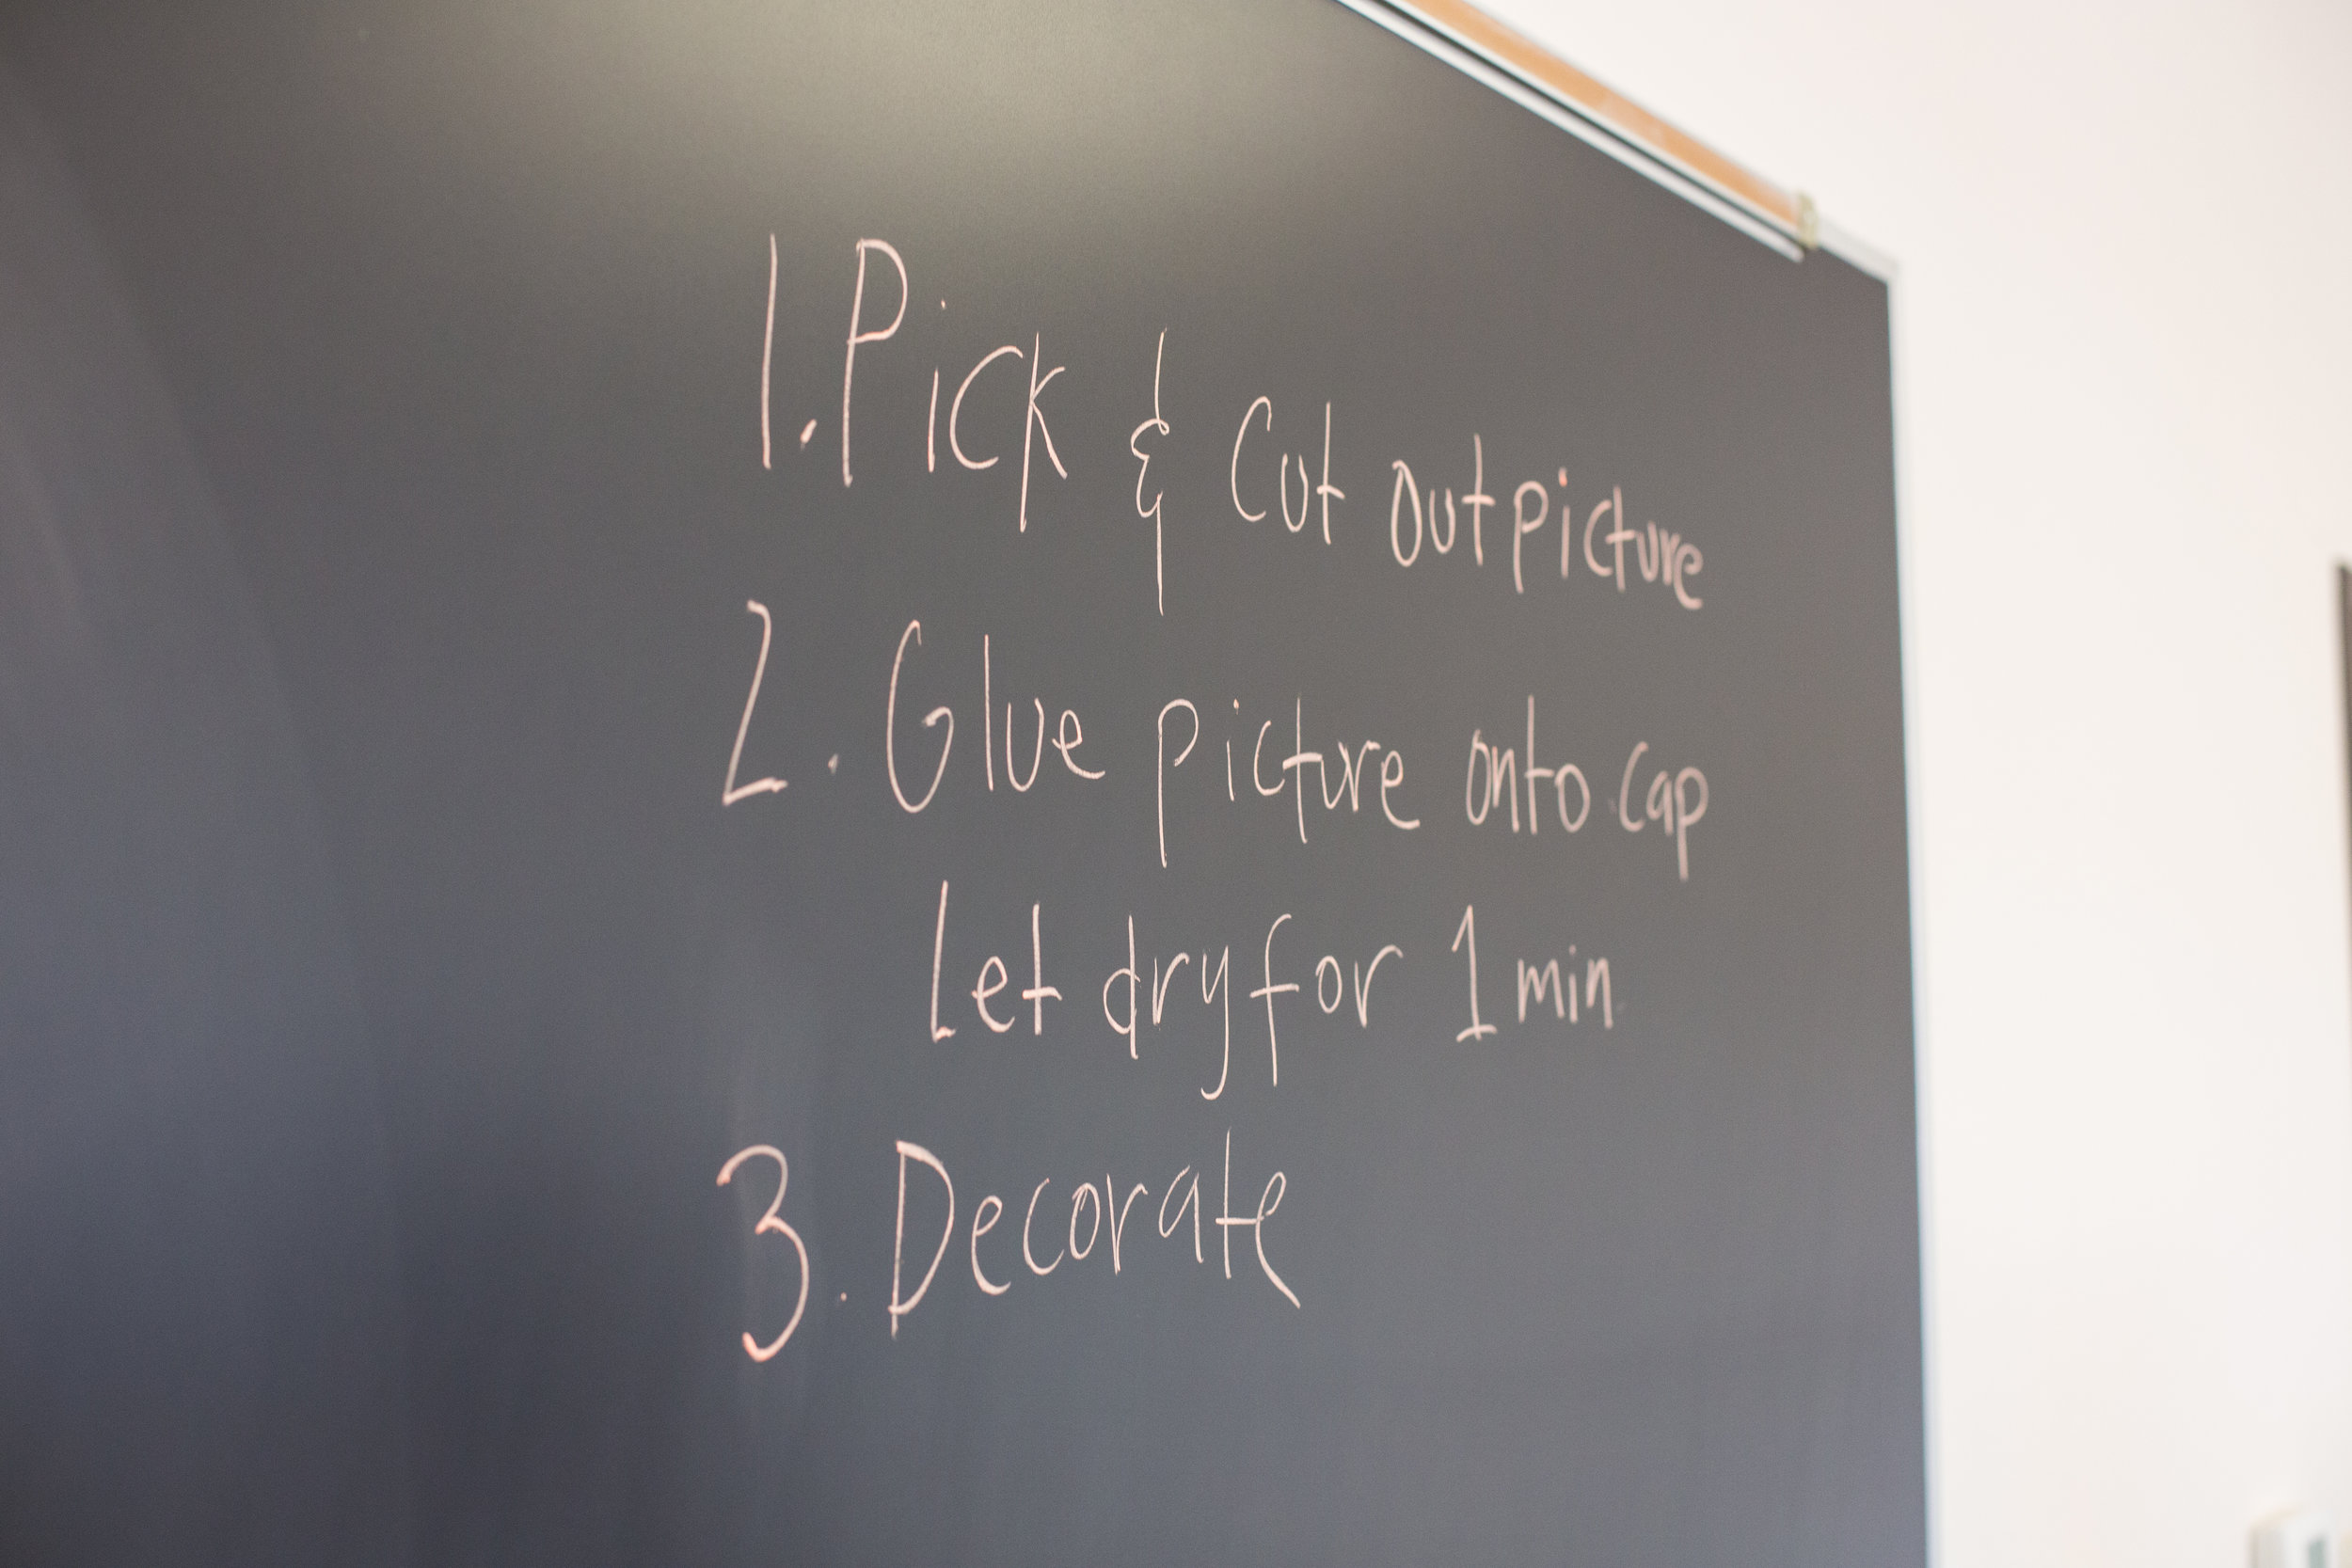 1. Pick & Cut out picture
2. Glue picture onto cap
Let dry for 1 min
3. Decorate